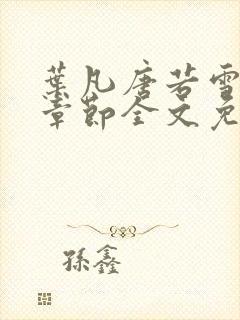 葉凡唐若雪
章節全文免
孫鑫